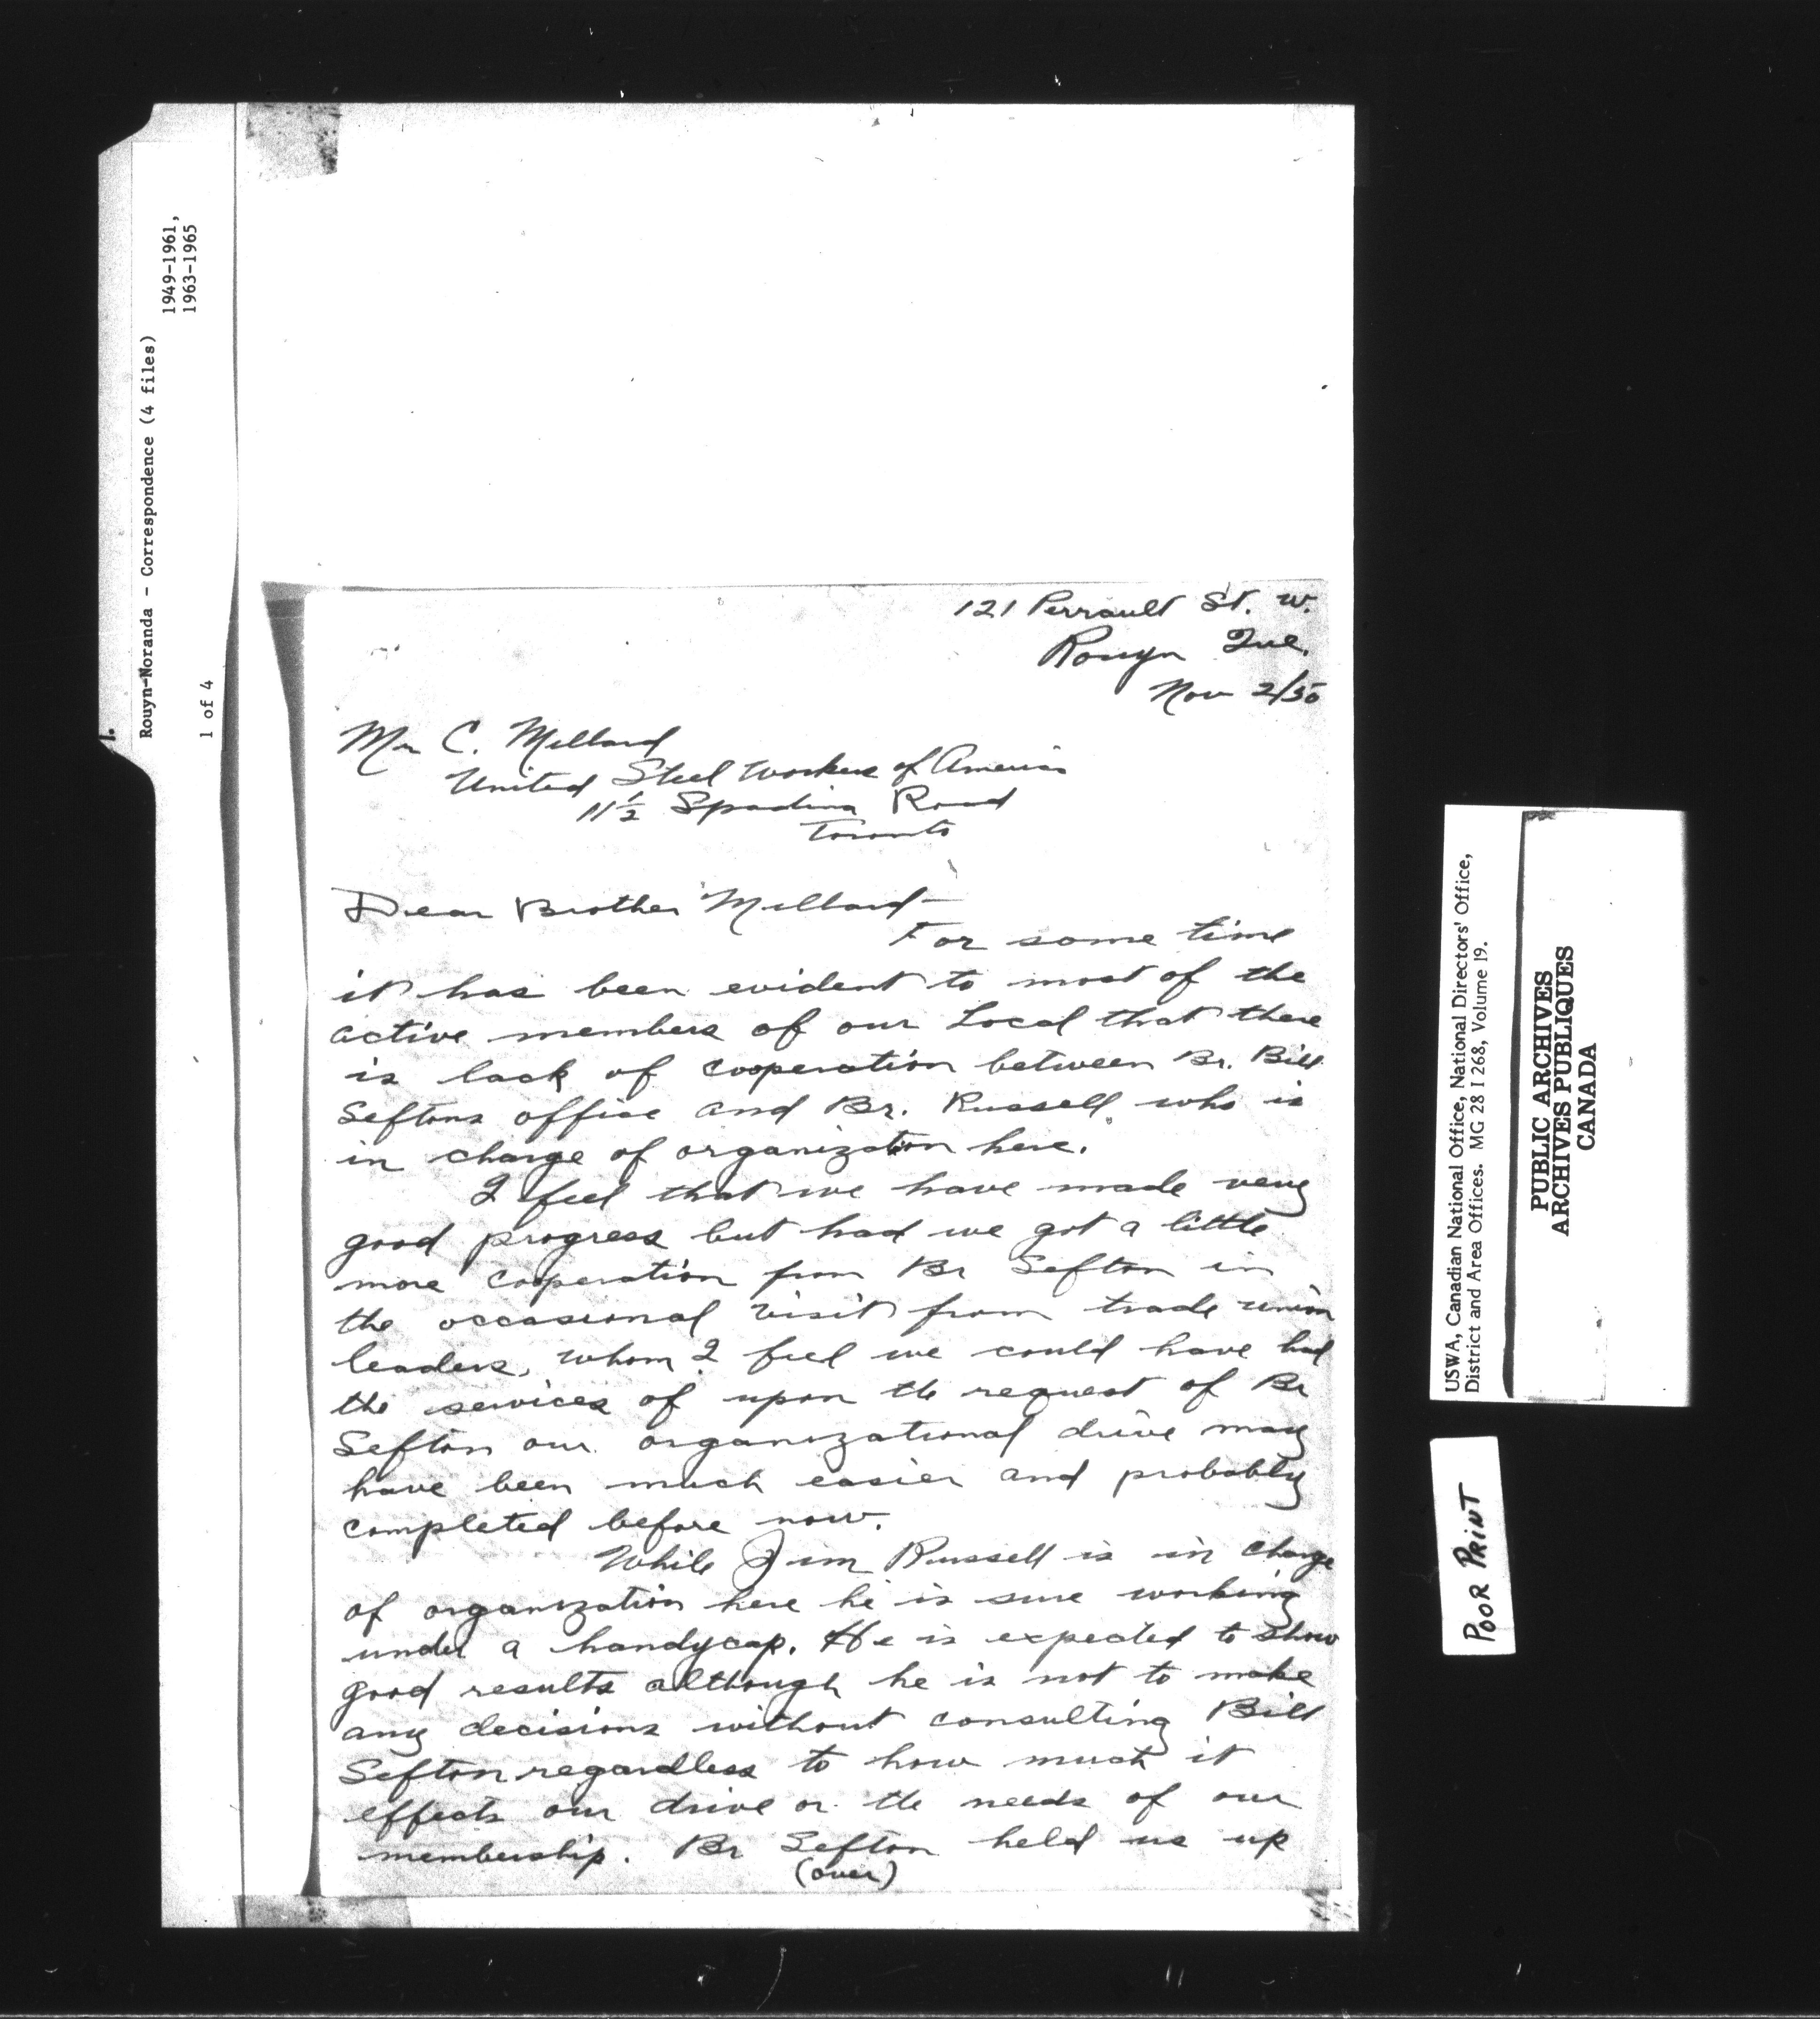 1949-1961,
1963-1965
Rouyn-Noranda - Correspondence (4 files)
1 of 4
121 Perrault St. W.
Rouyn Que.
Nov 2/50
Mr C. Millard
United Steel Workers of America
11½ Spadina Road
Toronto
Dear Brother Millard—
For some time
it has been evident to most of the
active members of our Local that there
is lack of cooperation between Br. Bill
Seftons office and Br. Russell who is
in charge of organization here.
I feel that we have made very
good progress but had we got a little
more cooperation from Br Sefton in
the occasional visit from trade union
leaders, whom I feel we could have had
the services of upon the request of Br
Sefton our organizational drive may
have been much easier and probably
completed before now.
While Jim Russell is in charge
of organization here he is sure working
under a handycap. He is expected to show
good results although he is not to make
any decisions without consulting Bill
Sefton regardless to how much it
effects our drive or the needs of our
membership. Br Sefton held us up
(over)
USWA, Canadian National Office, National Directors' Office,
District and Area Offices. MG 28 I 268, Volume 19.
PUBLIC ARCHIVES
ARCHIVES PUBLIQUES
CANADA
POOR PRINT